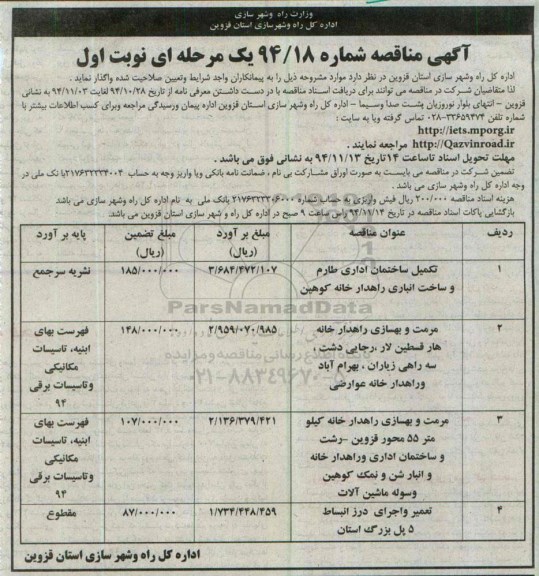 وزارت راه وشهر سازی
اداره کل راه وشهرسازی استان قزوین
آگهی مناقصه شماره ۹۴/۱۸ یک مرحله ای نوبت اول
اداره کل راه وشهر سازی استان قزوین در نظر دارد موارد مشروحه ذیل را به پیمانکاران واجد شرایط وتعیین صلاحیت شده واگذار نماید .
لذا متقاضیان شرکت در مناقصه می توانند برای دریافت اسناد مناقصه با در دست داشتن معرفی نامه از تاریخ ۹۴/۱۰/۲۸ لغایت ۹۴/۱۱/۰۳ به نشانی
قزوین - انتهای بلوار نوروزیان پشت صدا وسیما – اداره کل راه وشهر سازی استان قزوین اداره پیمان ورسیدگی مراجعه وبرای کسب اطلاعات بیشتر با
شماره تلفن ۳۳۶۵۹۴۷۴-۰۲۸ تماس گرفته ویا به سایت :
http://iets.mporg.ir
http://Qazvinroad.ir مراجعه نمایند .
مهلت تحویل اسناد تاساعت ۱۴تاریخ ۹۴/۱۱/۱۳ به نشانی فوق می باشد .
تضمین شرکت در مناقصه می بایست به صورت اوراق مشارکت بی نام ، ضمانت نامه بانکی ویا واریز وجه به حساب ۲۱۷۶۳۲۳۳۴۰۰۴ بانک ملی در
وجه اداره کل راه وشهر سازی می باشد .
هزینه اسناد مناقصه ۲۰۰/۰۰۰ ریال فیش واریزی به حساب شماره ۲۱۷۶۳۲۳۳۰۶۰۰۰ بانک ملی به نام اداره کل راه وشهر سازی می باشد
بازگشایی پاکات اسناد مناقصه در تاریخ ۹۴/۱۱/۱۴ راس ساعت ۹ صبح در اداره کل راه و شهر سازی استان قزوین می باشد.
ردیف عنوان مناقصه مبلغ بر آورد (ریال) مبلغ تضمین (ریال) پایه بر آورد
۱ تکمیل ساختمان اداری طارم ۳/۶۸۴/۴۷۲/۱۰۷ ۱۸۵/۰۰۰/۰۰۰ نشریه سرجمع
و ساخت انباری راهدار خانه کوهین
ParsNamadData
۲ مرمت و بهسازی راهدار خانه ۲/۹۵۹/۰۷۰/۹۸۵ ۱۴۸/۰۰۰/۰۰۰ فهرست بهای
هار قسطین لار ،رجایی دشت ، ابنیه، تاسیسات
سه راهی زیاران ، بهرام آباد مکانیکی
وراهدار خانه عوارضی وتاسیسات برقی
۹۴
پایگاه اطلاع رسانی مناقصه و مزایده
۰۲۱-۸۸۳۴۹۶۷۰
۳ مرمت و بهسازی راهدار خانه کیلو ۲/۱۳۶/۳۷۹/۴۲۱ ۱۰۷/۰۰۰/۰۰۰ فهرست بهای
متر ۵۵ محور قزوین –رشت ابنیه، تاسیسات
و ساختمان اداری وراهدار خانه مکانیکی
و انبار شن و نمک کوهین وتاسیسات برقی
وسوله ماشین آلات ۹۴
۴ تعمیر واجرای درز انبساط ۱/۷۳۴/۴۴۸/۴۵۹ ۸۷/۰۰۰/۰۰۰ مقطوع
۵ پل بزرگ استان
اداره کل راه وشهر سازی استان قزوین